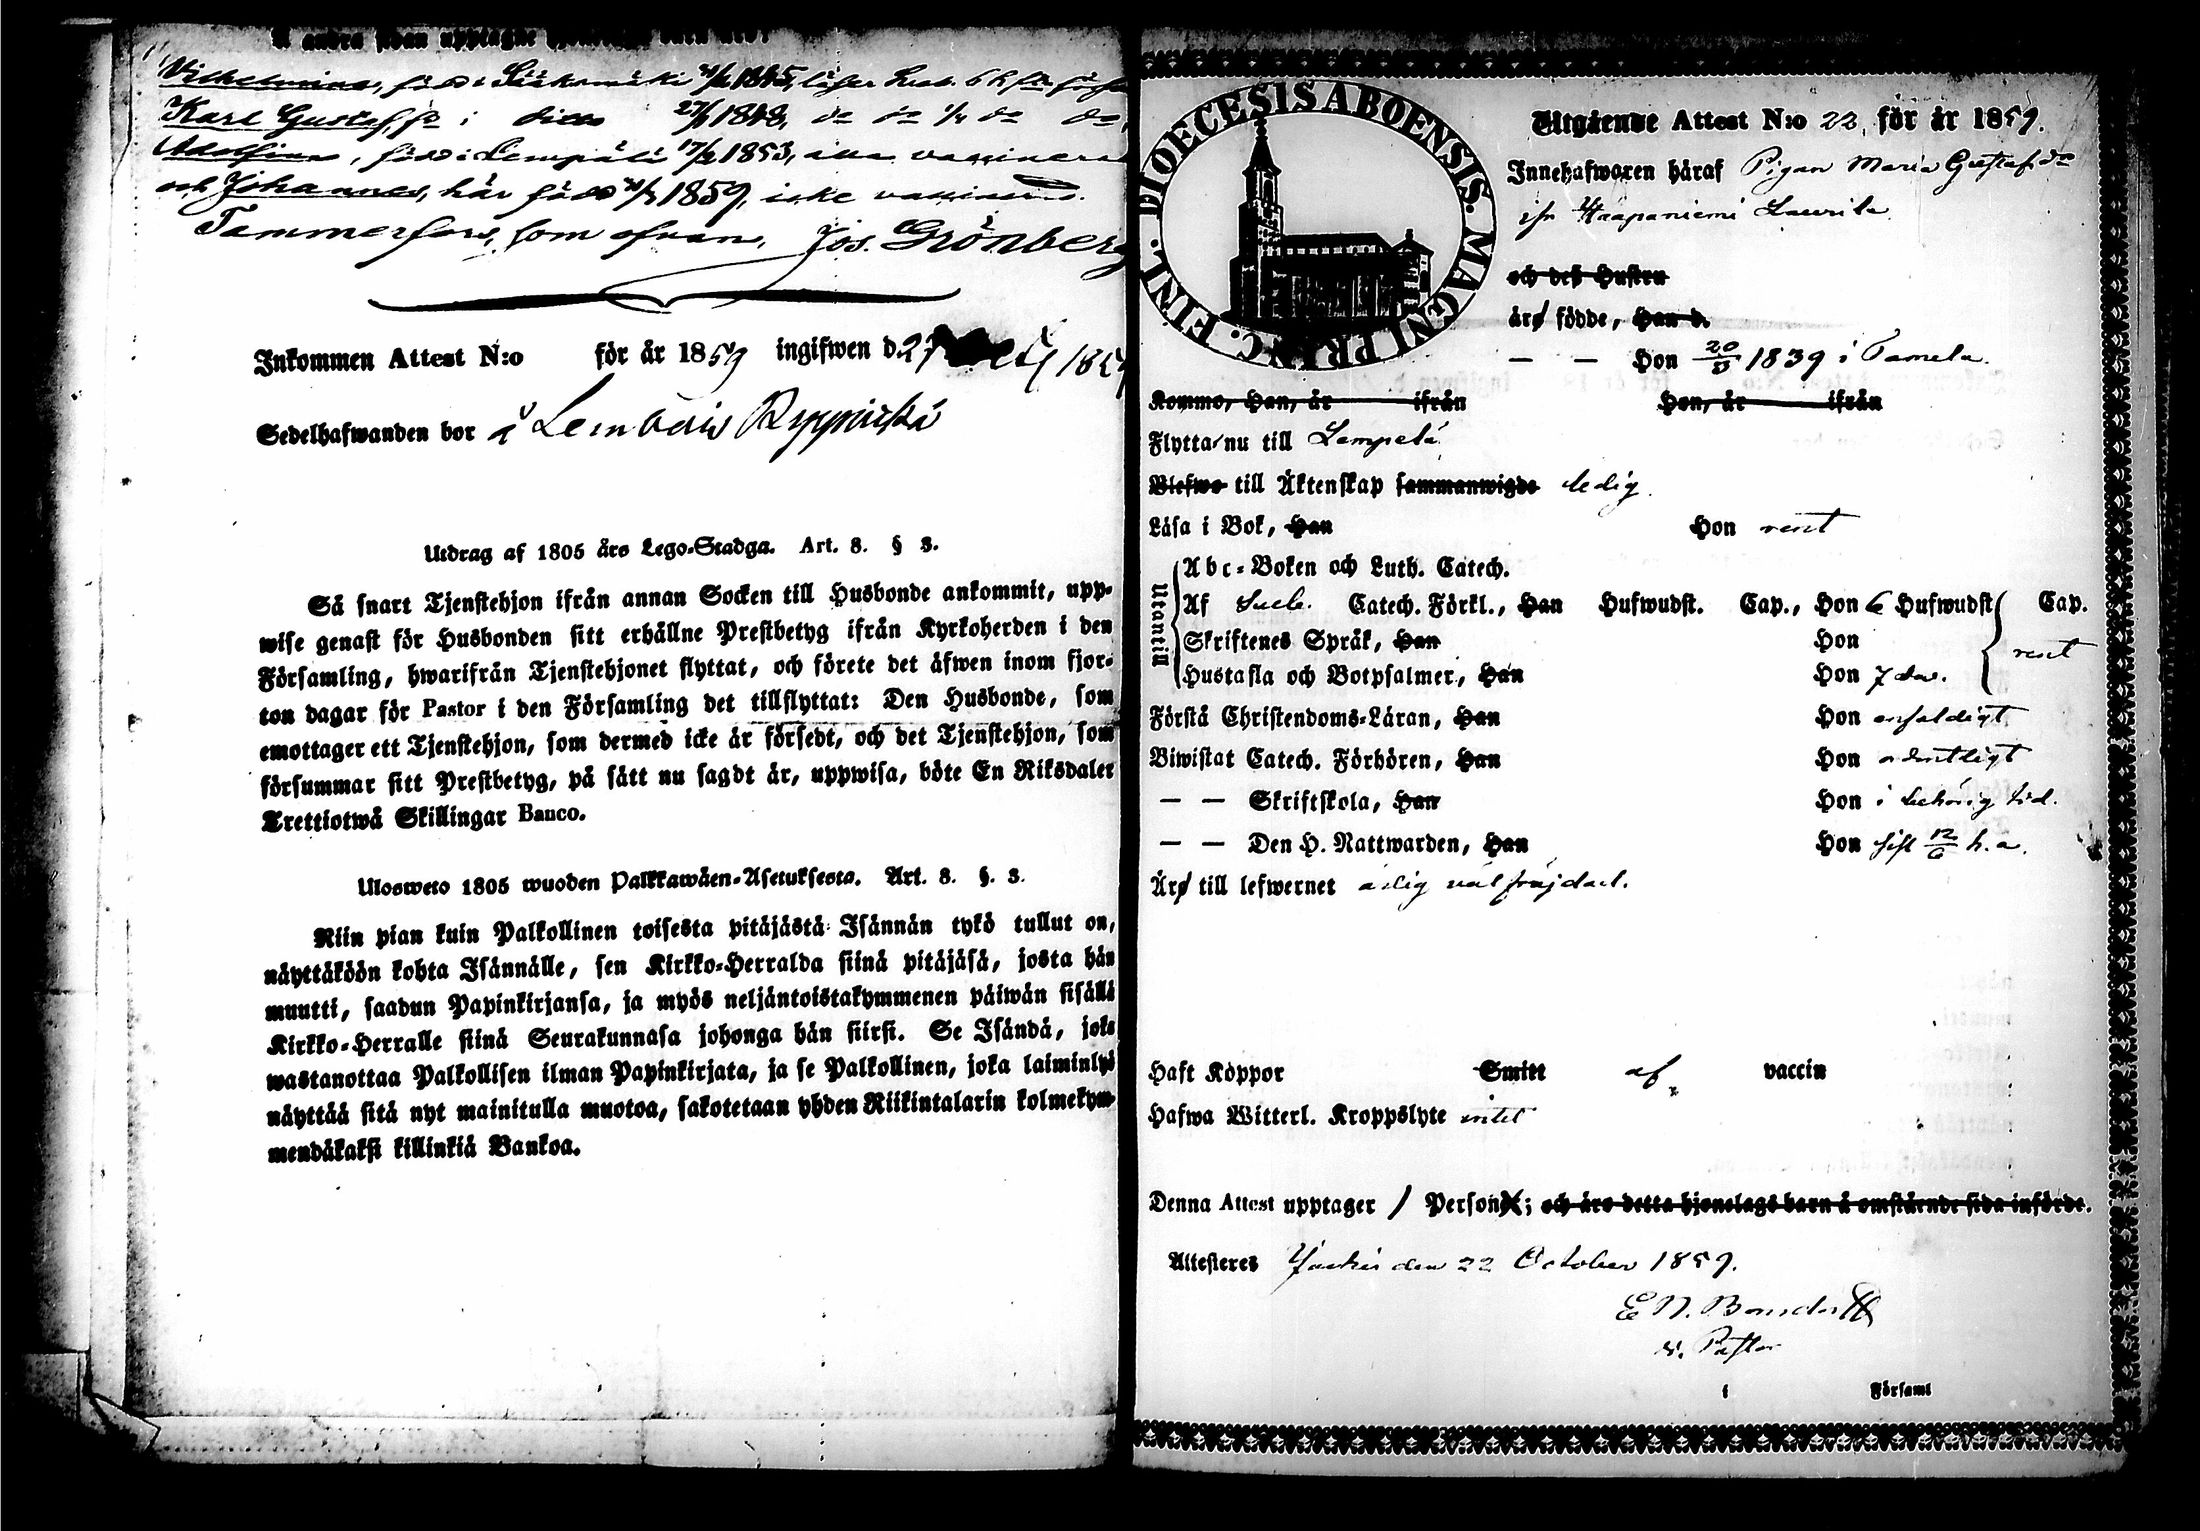 Å andra sidan upptagne
Wilhelmina, född i Sääksmäki 1845, läser
Karl Gustaf, fd i ditto 27/1 1848, do do do do
Adolfina, född i Lempälä 17/2 1853, alla vaccinerade
och Johannes, här född 1859, icke vaccinerad.
Tammerfors, som ofvan, Jos. Grönberg
Inkommen Attest N:o för år 1859 ingifwen d. 27
Sedelhafwanden bor å Lembois Ryynikkä
Utdrag af 1805 års Lego-Stadga. Art. 8. § 3.
Så snart Tjenstehjon ifrån annan Socken till Husbonde ankommit, upp-
wise genast för Husbonden sitt erhållne Prestbetyg ifrån Kyrkoherden i den
Församling, hwarifrån Tjenstehjonet flyttat, och förete det äfwen inom fjor-
ton dagar för Pastor i den Församling det tillflyttat: Den Husbonde, som
emottager ett Tjenstehjon, som dermed icke är försedt, och det Tjenstehjon, som
försummar sitt Prestbetyg, på sätt nu sagdt är, uppwisa, böte En Riksdaler
Trettiotwå Skillingar Banco.
Uloswweto 1805 wuoden Palkkawäen-Asetuksesta. Art. 8. §. 3.
Niin pian kuin Palkollinen toisesta pitäjästä Isännän tykö tullut on,
näyttäköön kohta Isännälle, sen Kirkko-Herralda siinä pitäjäsä, josta hän
muutti, saadun Papinkirjansa, ja myös neljäntoistakymmenen päiwän sisällä
Kirkko-Herralle siinä Seurakunnasa johonga hän siirsi. Se Isändä, joka
wastanottaa Palkollisen ilman Papinkirjata, ja se Palkollinen, joka laiminlyö
näyttää sitä nyt mainitulla muotoa, sakotetaan yhden Riikintalarin kolmekym-
mendäkaksi killinkiä Bankoa.
DIOECESIS ABOENSIS. MAGNI PRINC. FINL.
Utgående Attest N:o 22, för år 1859.
Innehafwaren häraf Pigan Maria Gustafsdr
ifr Haapaniemi Laurila
och des Hustru
äro födde, Han d.
— — Hon 20/ 1839 i Tamela
Kommo, Han, år ifrån Hon, år ifrån
Flytta nu till Lempelä
Blefwo till Äktenskap sammanwigde ledig.
Läsa i Bok, Han Hon rent
Utantill
Abc-Boken och Luth. Catech.
Af Sueb. Catech. Förkl., Han Hufwudst. Cap., Hon 6 Hufwudst Cap.
Skriftenes Språk, Han Hon rent
Hustafla och Botpsalmer, Han Hon 7 do.
Förstå Christendoms-Läran, Han Hon enfaldigt
Biwistat Catech. Förhören, Han Hon ordentligt
— — Skriftskola, Han Hon i behörig tid.
— — Den H. Nattwarden, Han Hon sist 12/6 h.a.
Äro till lefwernet ärlig väl fräjdad.
Haft Koppor Smitt af vaccin
Hafwa Witterl. Kroppslyte intet
Denna Attest upptager 1 Person; och äro detta hjonelags barn å omstående sida införde.
Attesteres Jockis den 22 October 1859.
E N. Bonsdorff
v. Pastor
i Församl